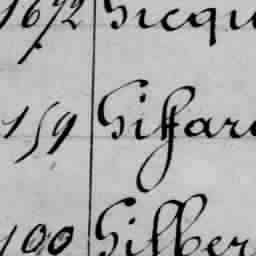 1672 Gicqu
159 Giffard
100 Gilber